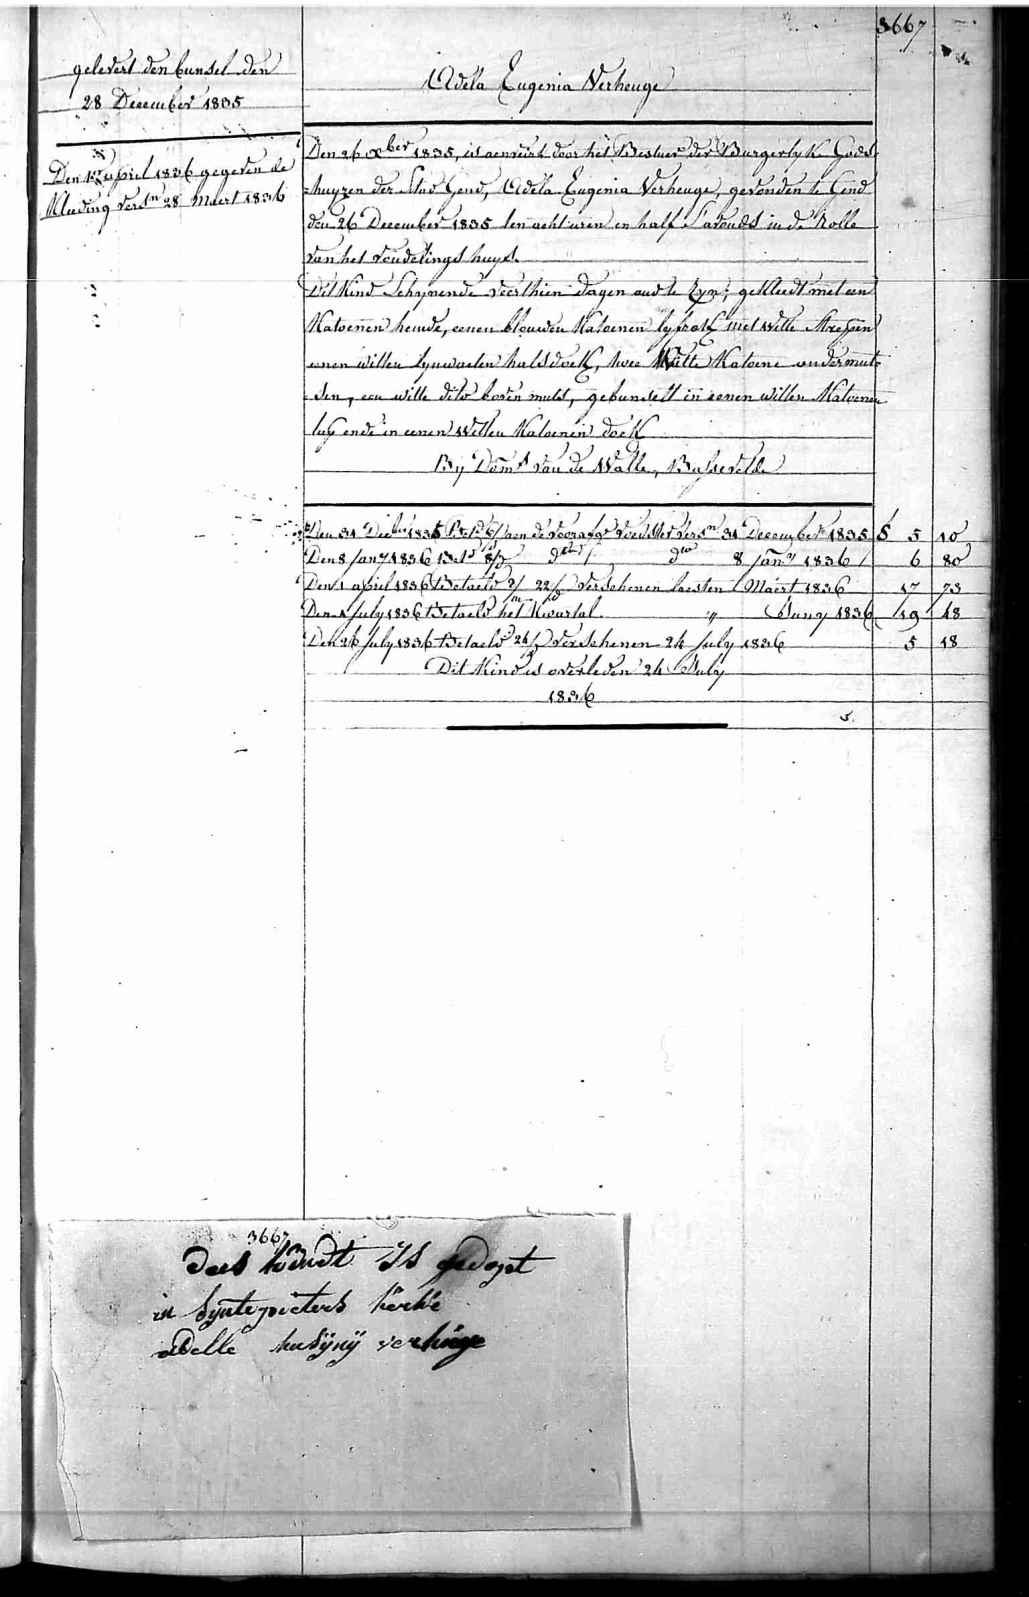 3667
gelevert den bunsel den
28 December 1835
Den 1 april 1836 gegeven de
Kleeding versn 28 Maert 1836
Adela Eugenia Verheuge
Den 26 xber 1835, is aenveird door het Bestuer der Burgerlyke Gods
=huyzen der Stad Gend, Adela Eugenia Verheuge, gevonden te Gend
den 26 December 1835 ten acht uren en half s'avonds in de Rolle
van het vondelings huys.
Dit Kind Schynende veerthien dagen oud te zyn; gekleedt met een
Katoenen hemde, eenen blouwen Katoenen lyfrok met witte streepen
eenen witten lynwaeten halsdoek, twee Witte Katoene ondermut=
=sen, een witte dito boven muts, gebunselt in eenen witten Katoenen
luy ende in eenen Witten Katoenen doek
By Doms van de Walle, Bassevelde
Den 31 Decber 1835 Betd aen de voorafge voedster versn 31 December 1835 5 5 10
Den 8 Jany 1836 Betd do do 8 Jany 1836 6 80
Den 1 april 1836 Betaeld verschenen laesten Maert 1836 17 73
Den 1 July 1836 Betaeld het Kwartal " Juny 1836 19 48
Den 26 July 1836 Betaeld verschenen 24 July 1836 5 18
Dit Kind is overleden 24 July
1836
3667
dees kindt is gedopt
in Syntepieters kerke
adelle husynÿ verhuge